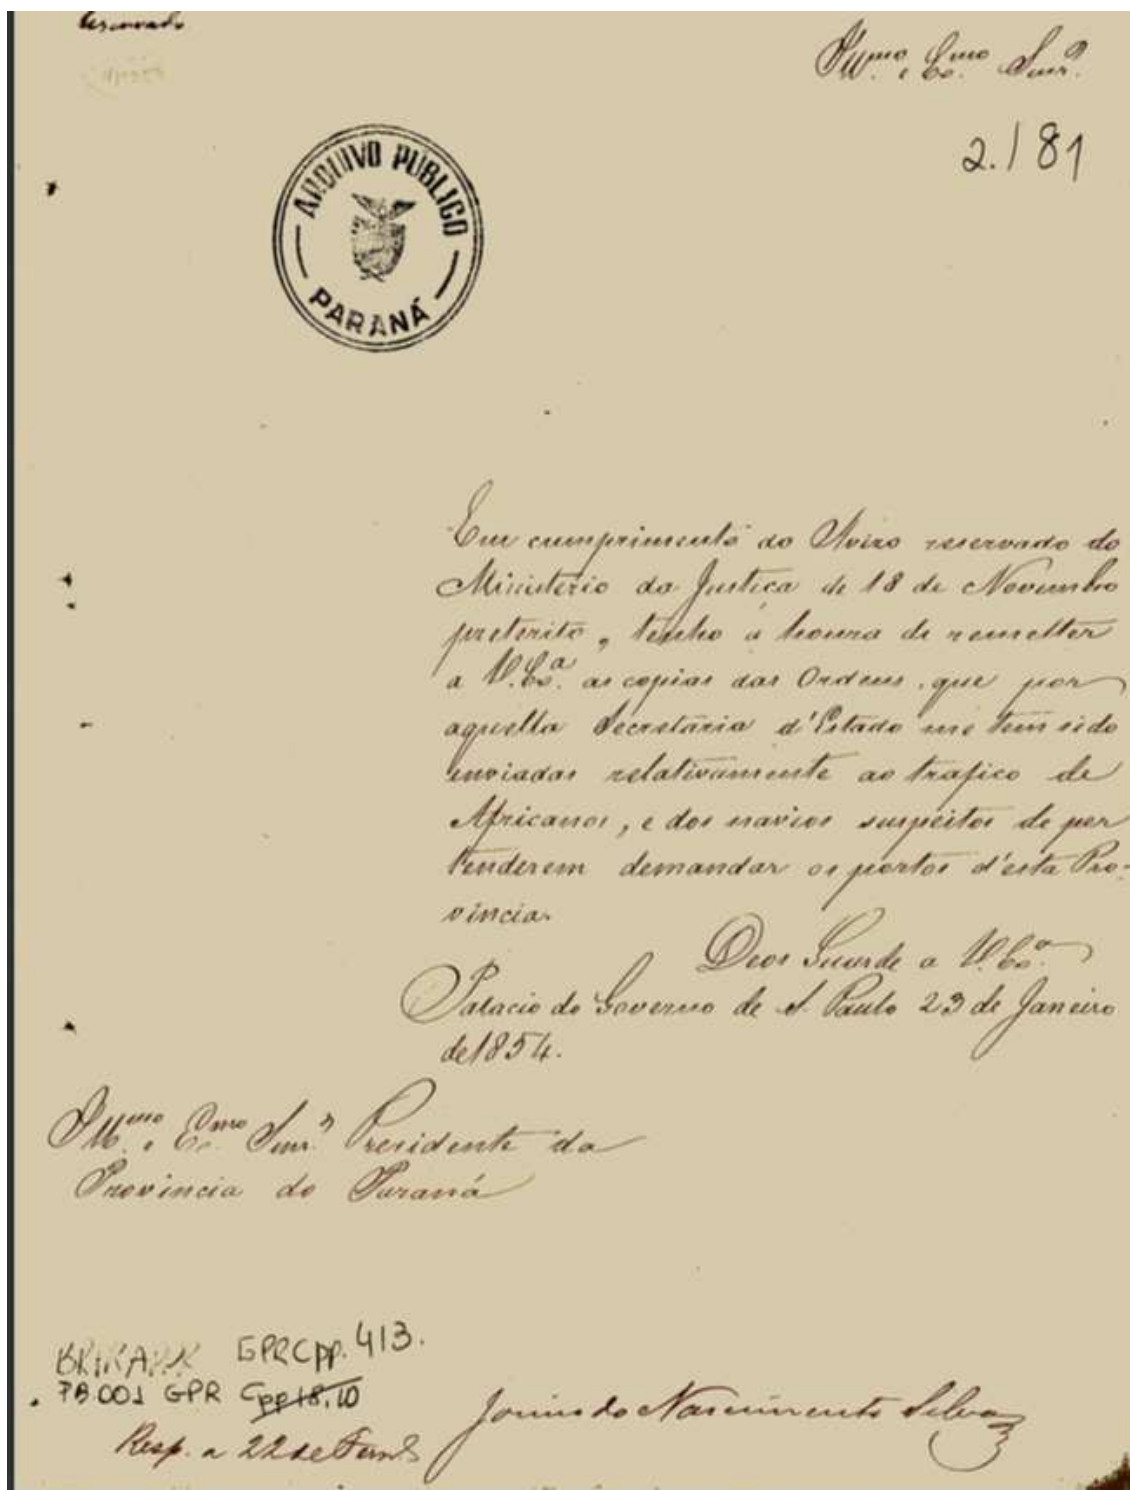 Reservado
Ill.mo e Ex.mo Senr.
2.181
ARQUIVO PÚBLICO
PARANÁ
Em cumprimento do Avizo reservado do
Ministerio da Justiça de 18 de Novembro
preterito, tenho a honra de remetter
a V. Ex.a as copias das Ordens, que por
aquella Secretaria d'Estado me tem sido
enviadas relativamente ao trafico de
Africanos, e dos navios suspeitos de per
tenderem demandar os portos d'esta Pro-
vincia.
Deos Guarde a V. Ex.a
Palacio do Governo de S. Paulo 23 de Janeiro
de 1854.
Ill.mo e Ex.mo Senr. Presidente da
Provincia do Paraná
GPRCpp. 413.
PB.001 GPR Cpp18.10
Resp. a 22 de
Josino do Nascimento Silva